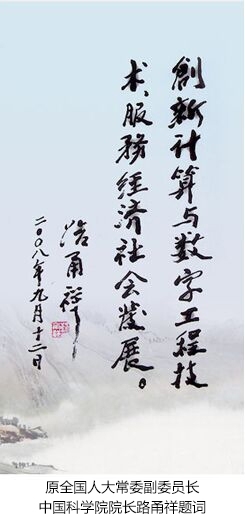 創新计算与数字工程技
术、服務經济社会發展。
路甬祥
二〇〇八年九月十二日
原全国人大常委副委员长
中国科学院院长路甬祥题词